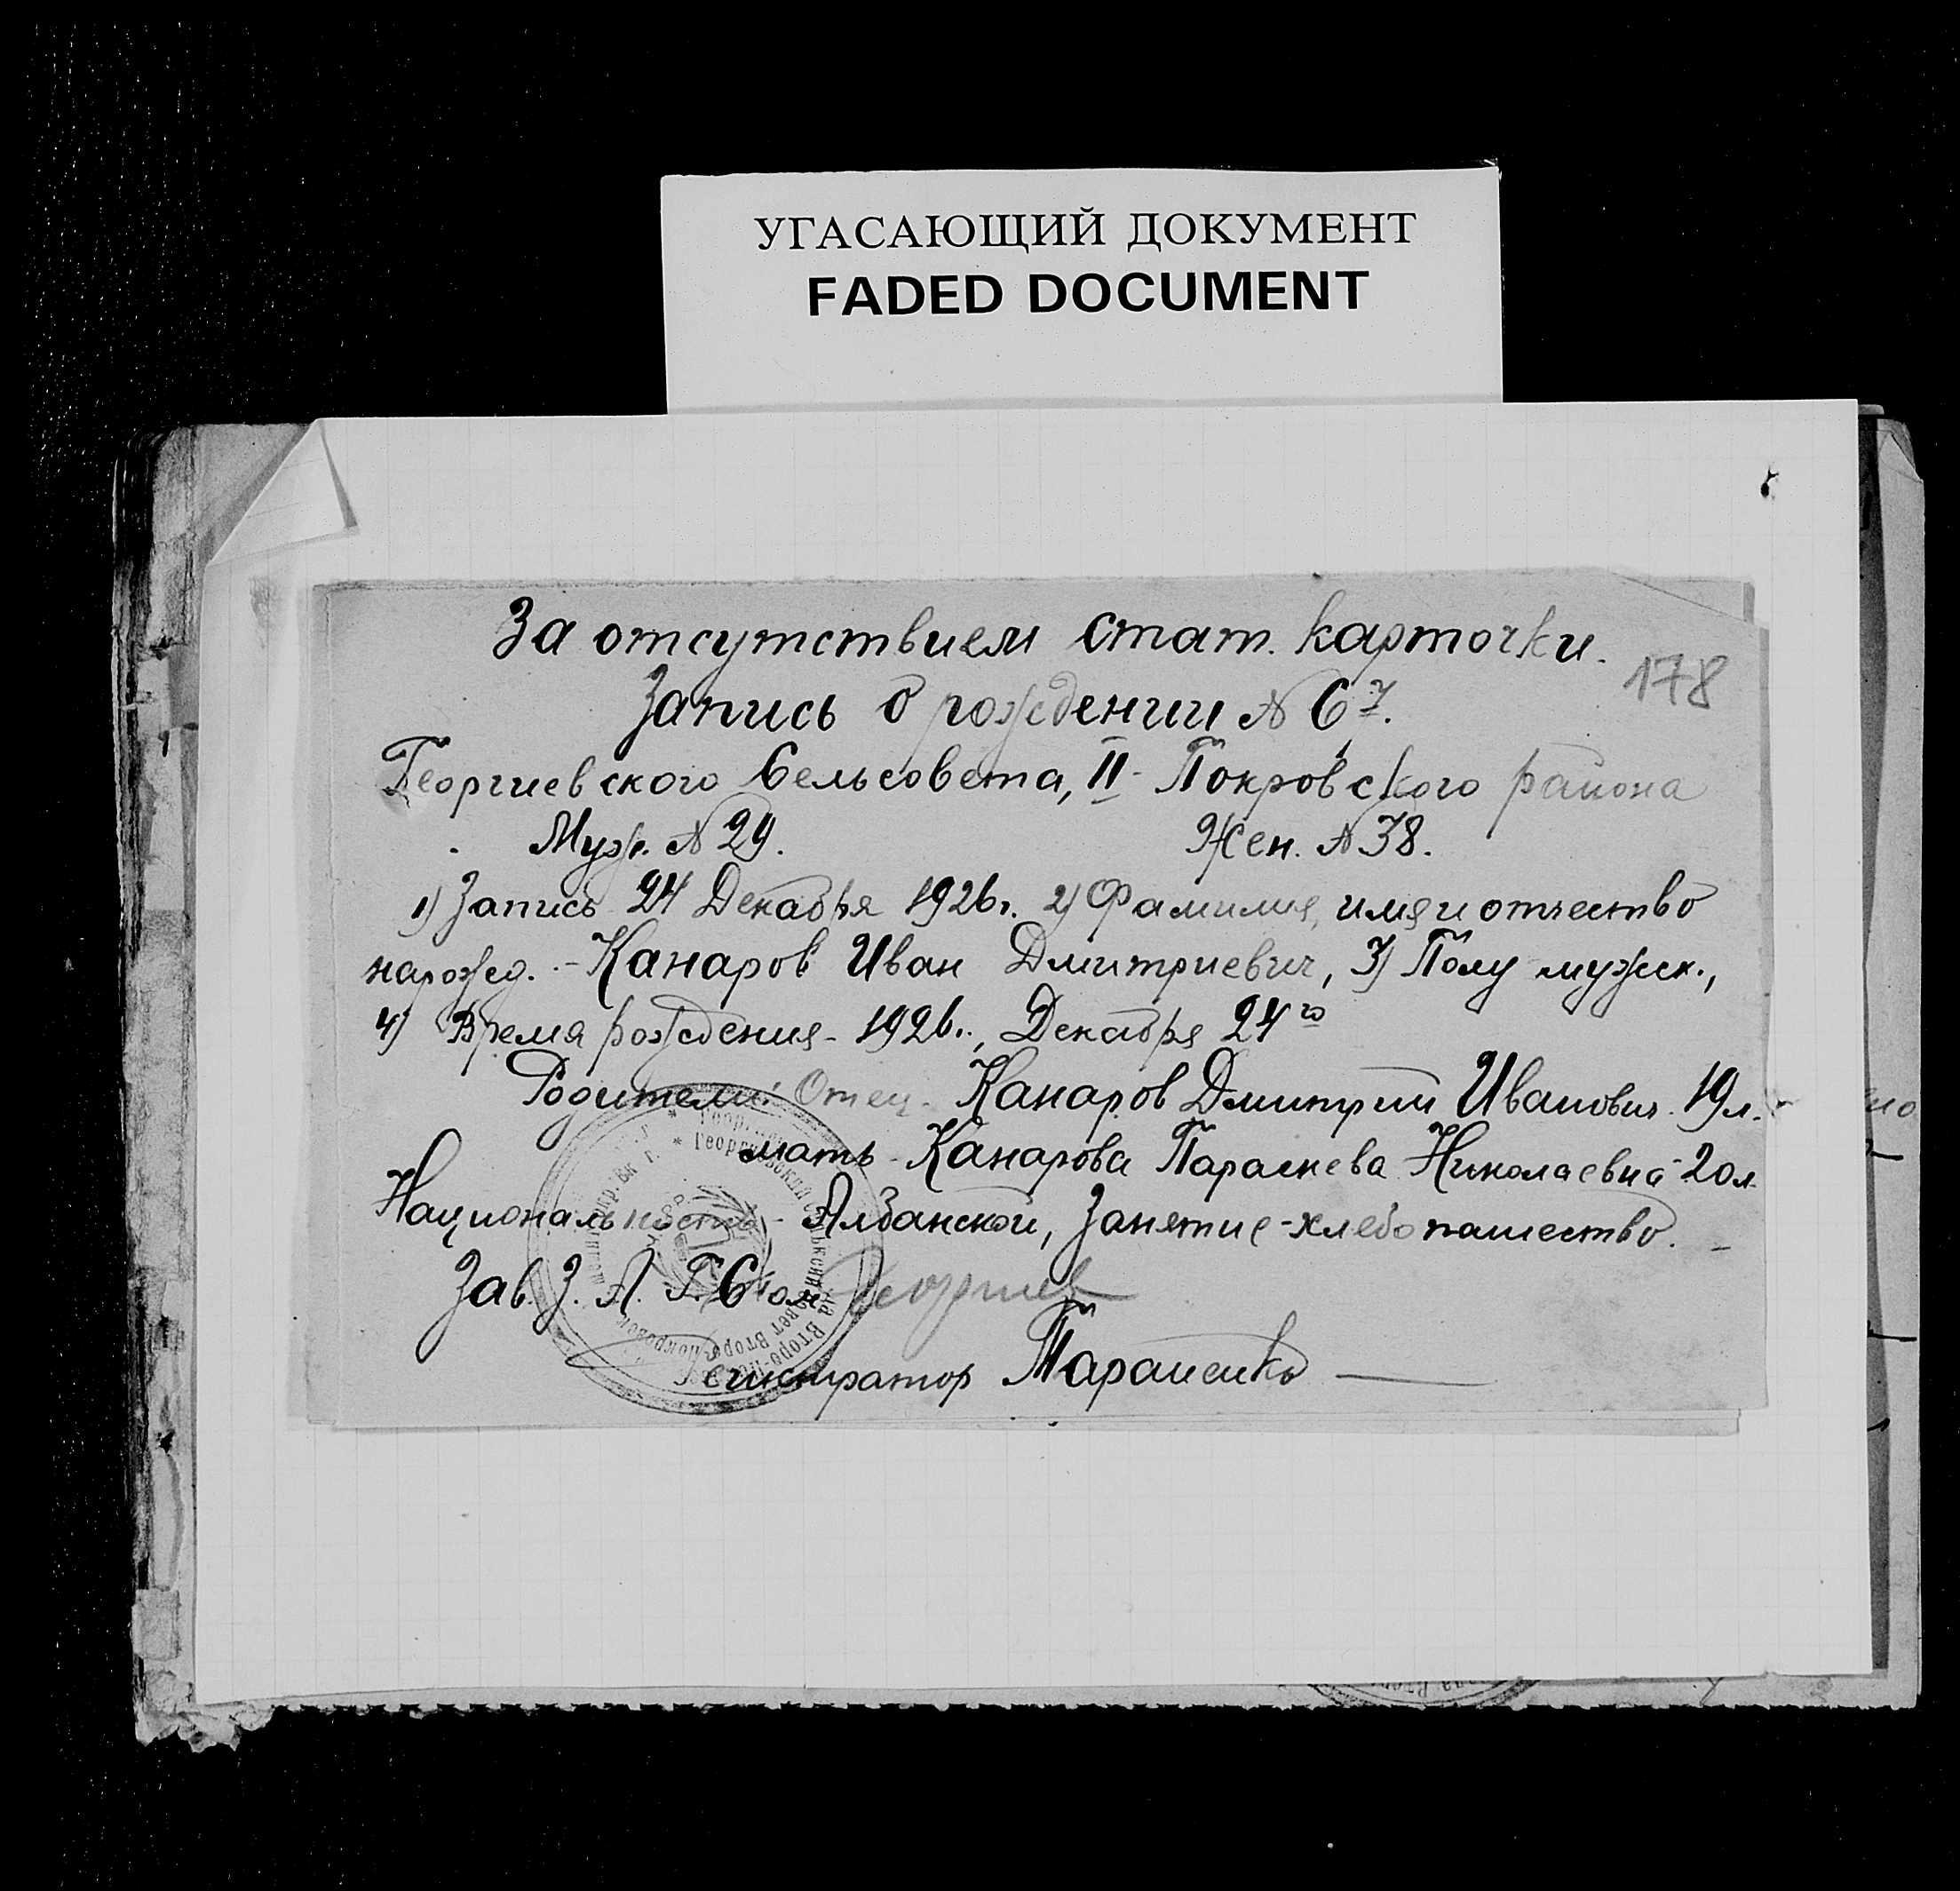 УГАСАЮЩИЙ ДОКУМЕНТ
FADED DOCUMENT
За отсутствием стат. карточки.
178
Запись о рождении № 67.
Георгиевского Сельсовета, II-Покровского района
Муж. № 29. Жен. № 38.
1) Запись 24 Декабря 1926г. 2) Фамилия, имя и отчество
нарожд. - Канаров Иван Дмитриевич, 3) Полу мужск.,
4) Время рождения - 1926г., Декабря 24го
Родители: Отец - Канаров Дмитрий Иванович 19л.
мать - Канарова Параскева Николаевна - 20л.
Национальность - Албанской, Занятие - хлебопашество.
Зав. З.А.Г.С'ом Георгиев
Регистратор Тараненко